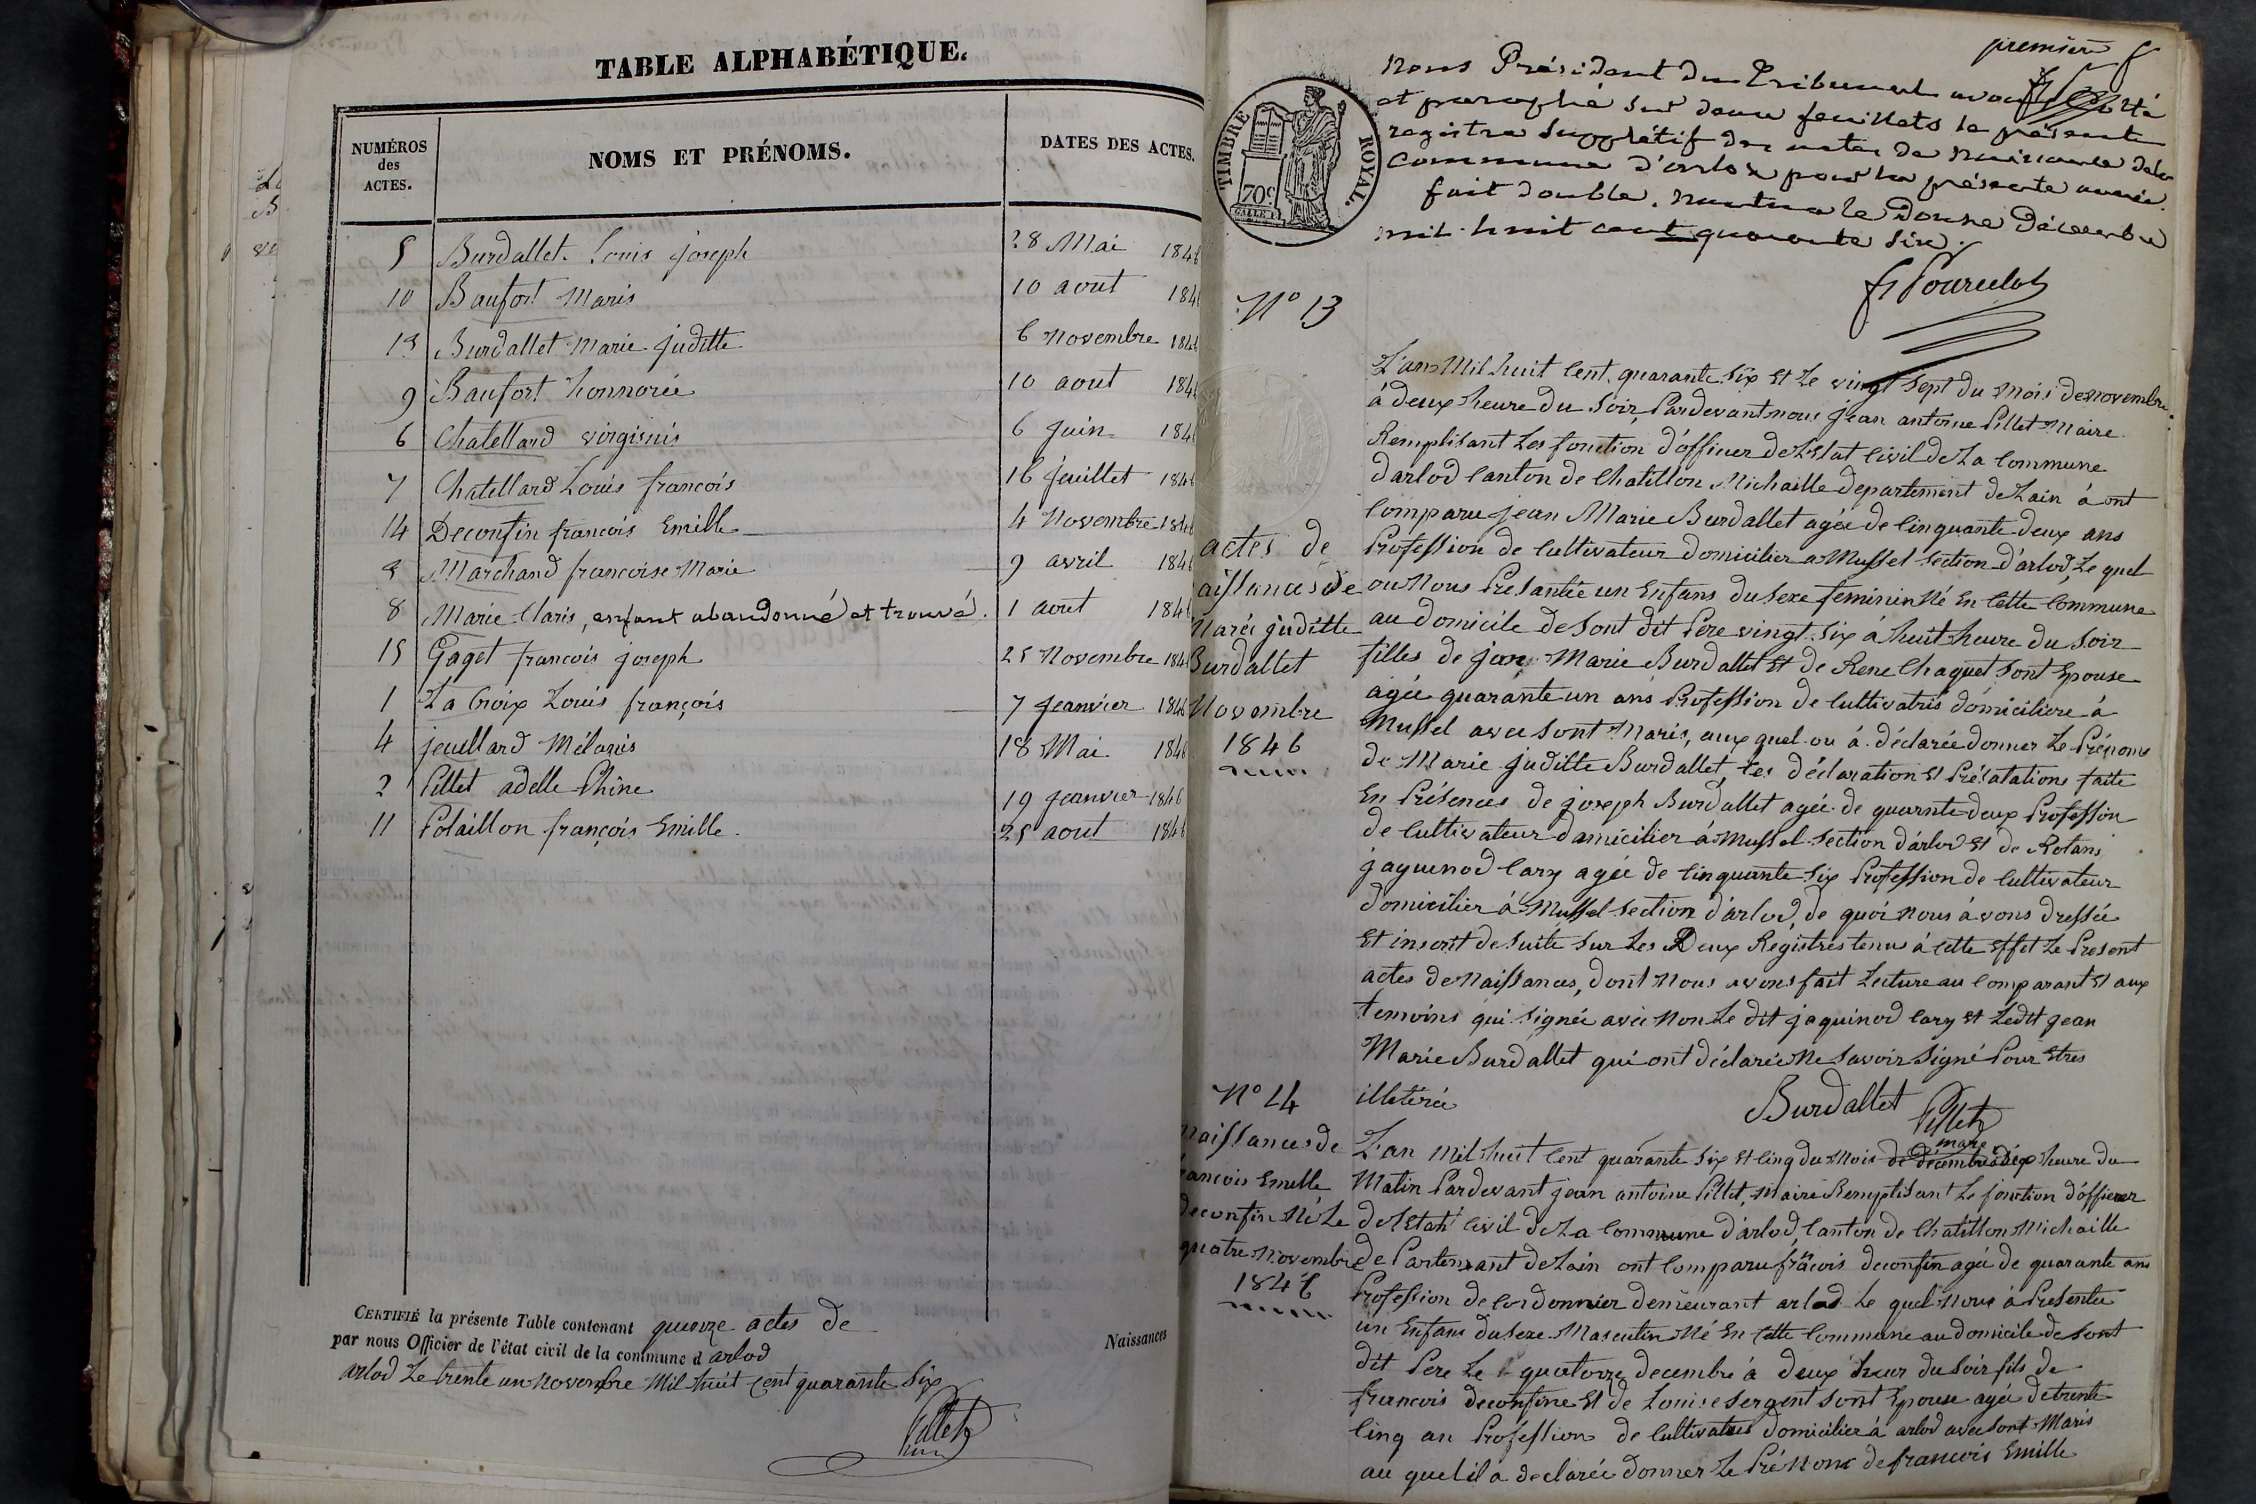 TABLE ALPHABÉTIQUE.
NUMÉROS des ACTES.
NOMS ET PRÉNOMS.
DATES DES ACTES.
5 Burdallet Louis joseph 28 Mai 1846
10 Baufort Maris 10 aout 1846
13 Burdallet Marie juditte 6 Novembre 1846
9 Baufort honnorée 10 aout 1846
6 Chatellard virginis 6 juin 1846
7 Chatellard Louis francois 16 jeuillet 1846
14 Deconfin francois Emille 4 Novembre 1846
3 Marchand francoise Marie 9 avril 1846
8 Marie Claris, enfant abandonné et trouvé. 1 aout 1846
15 Gaget francois joseph 25 Novembre 1846
1 La Croix Louis françois 7 jeanvier 1846
4 jeuillard Mélanis 18 Mai 1846
2 Pillet adelle Phine 19 jeanvier 1846
11 Polaillon françois Emille. 25 aout 1846
CERTIFIÉ la présente Table contenant quinze actes de Naissances
par nous Officier de l'état civil de la commune d arlod
arlod Le trente un novembre Mil huit cent quarante Six
Pillet
premier f
TIMBRE ROYAL.
70c.
Nous Président du Tribunal avons coté
et paraphé sur deux feuillets le présent
registre supplétif des actes de naissance dela
commune d'arlox pour la présente année.
fait double. nantua le douze décembre
mil huit cent quarante six.
N° 13
L'an Mil huit Cent quarante Six Et Le vingt Sept du Mois de novembre
à deux heure du Soir Pardevant nous jean antoine Pillet Maire
Remplisant Les fonction d'officier de L'Etat Civil de La Commune
d'arlod Canton de Chatillon Michaille departement de Lain à ont
Comparu jean Marie Burdallet agée de Cinquante deux ans
Profession de Cultivateur domicilier a Mussel Section d'arlod, Le quel
actes de
aissances de
Marée juditte
Burdallet
Novembre
1846
ou Nous Présantée un Enfans du Sexe feminin Né En Cette Commune
au domicile de Sont dit Pere vingt Six à huit heure du Soir
filles de jean Marie Burdallet Et de Rene Chaquet Sont Epouse
agée quarante un ans Profession de Cultivatris domiciliere à
Mussel avec Sont Maris, aux quel ou à déclarée donner Le Prénoms
de Marie juditte Burdallet, Les déclaration Et Présatations faite
En Présences de joseph Burdallet agée de quarnte deux Profession
de Cultivateur domicilier à Mussel Section d'arlod Et de Rolans
jaguenod Cary agée de Cinquante Six Profession de Cultivateur
domicilier à Mussel Section d'arlod, de quoi Nous àvons dressée
Et inscrit de Suite Sur Les Deux Régistres tenus à Cette Effet Le Present
actes de Naissances, dont Nous avons fait Lecture au Comparant Et aux
temoins qui Signée avec Non Le dit jaquinod Cary Et Ledit jean
Marie Burdallet qui ont déclarée Ne Savoir Signé Pour Etres
illetérée
Burdallet Pillet
maire
N° 14
naissances de
francois Emille
deconfin Né Le
quatre Novembre
1846
L'an Mil huit Cent quarante Six Et Cinq du Mois de décembre à dix heure du
Matin Pardevant jean antoine Pillet, Maire Remplisant Le fonction d'officier
de L'Etat Civil de La Commune d'arlod, Canton de Chatillon Michaille
de Partement de Lain ont Comparu francois deconfin agé de quarante ans
Profession de Cordonnier demeurant arlod Le quel Nous à Presentée
un Enfans du Sexe Masculin Né En Cette Commune au domicile de Sont
dit Pere Le quatorze decembre à deux heur du Soir fils de
francois deconfine Et de Louise Sergent Sont Epouse agée de trente
Cinq an Profession de Cultivatris domicilier à arlod avec Sont Maris
au quel il a declarée donner Le Prénoms de francois Emille